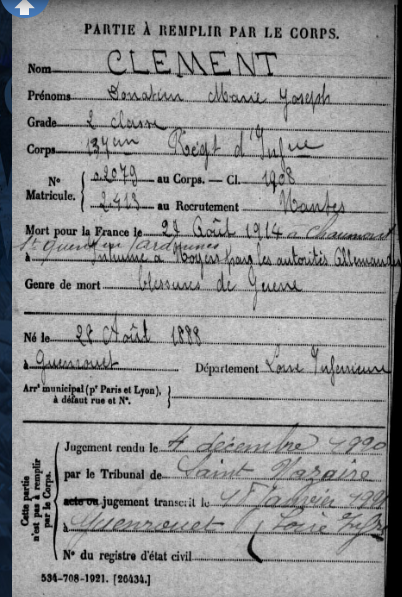 PARTIE À REMPLIR PAR LE CORPS.
Nom CLEMENT
Prénoms Donatien Marie Joseph
Grade 2 classe
Corps 137em Regt d'Infrie
N° 02079 au Corps. — Cl. 1908
Matricule. 2413 au Recrutement Nantes
Mort pour la France le 28 Août 1914 à Chaumont
St Quentin Ardennes
à Inhumé à Noyers par les autorités Allemandes
Genre de mort blessures de Guerre
Né le 28 Août 1888
à Guenrouet Département Loire Inférieure
Arrt municipal (pr Paris et Lyon),
à défaut rue et N°.
Cette partie
n'est pas à remplir
par le Corps.
Jugement rendu le 4 décembre 1920
par le Tribunal de Saint Nazaire
acte ou jugement transcrit le janvier 1921
à Guenrouet Loire Infre
N° du registre d'état civil
534-708-1921. [26434.]